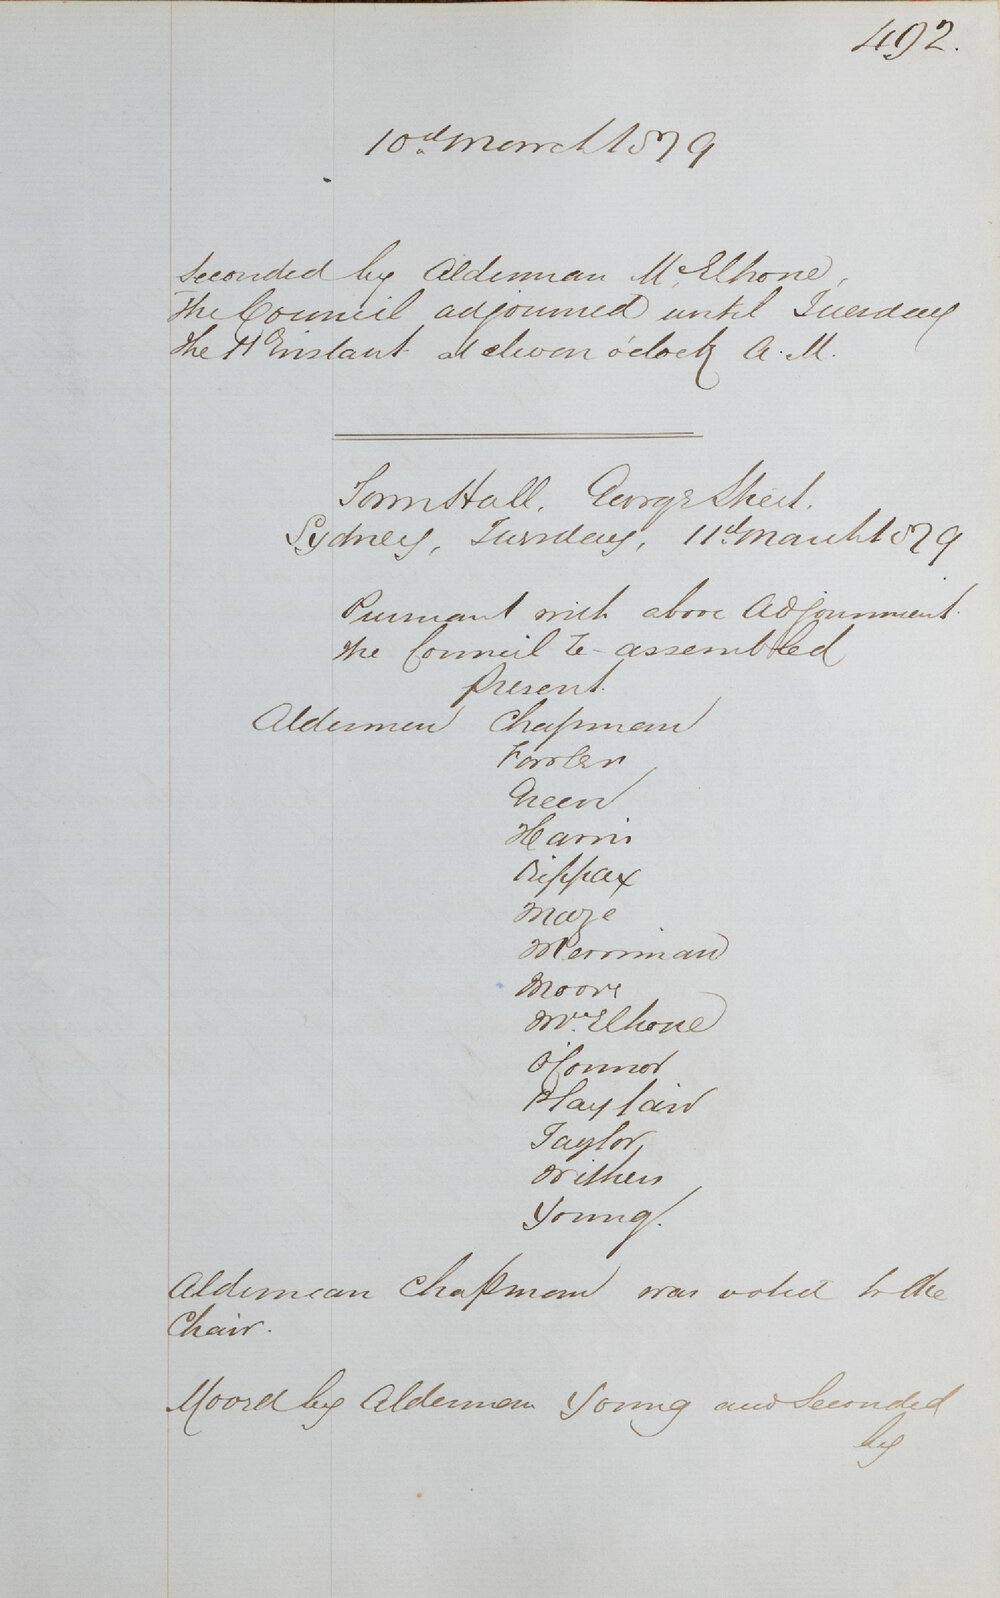 492.
10th March 1879
seconded by Alderman McElhone,
the Council adjourned until Tuesday
the 11th instant at eleven o'clock A.M.
Town Hall, George Street.
Sydney, Tuesday, 11th March 1879
Pursuant with above Adjournment
the Council re-assembled
Present.
Aldermen Chapman
Fowler
Green
Harris
Kippax
Maze
Merriman
Moore
McElhone
O'Connor
Playfair
Taylor
Withers
Young.
Alderman Chapman was voted to the
Chair.
Moved by Alderman Young and Seconded
by